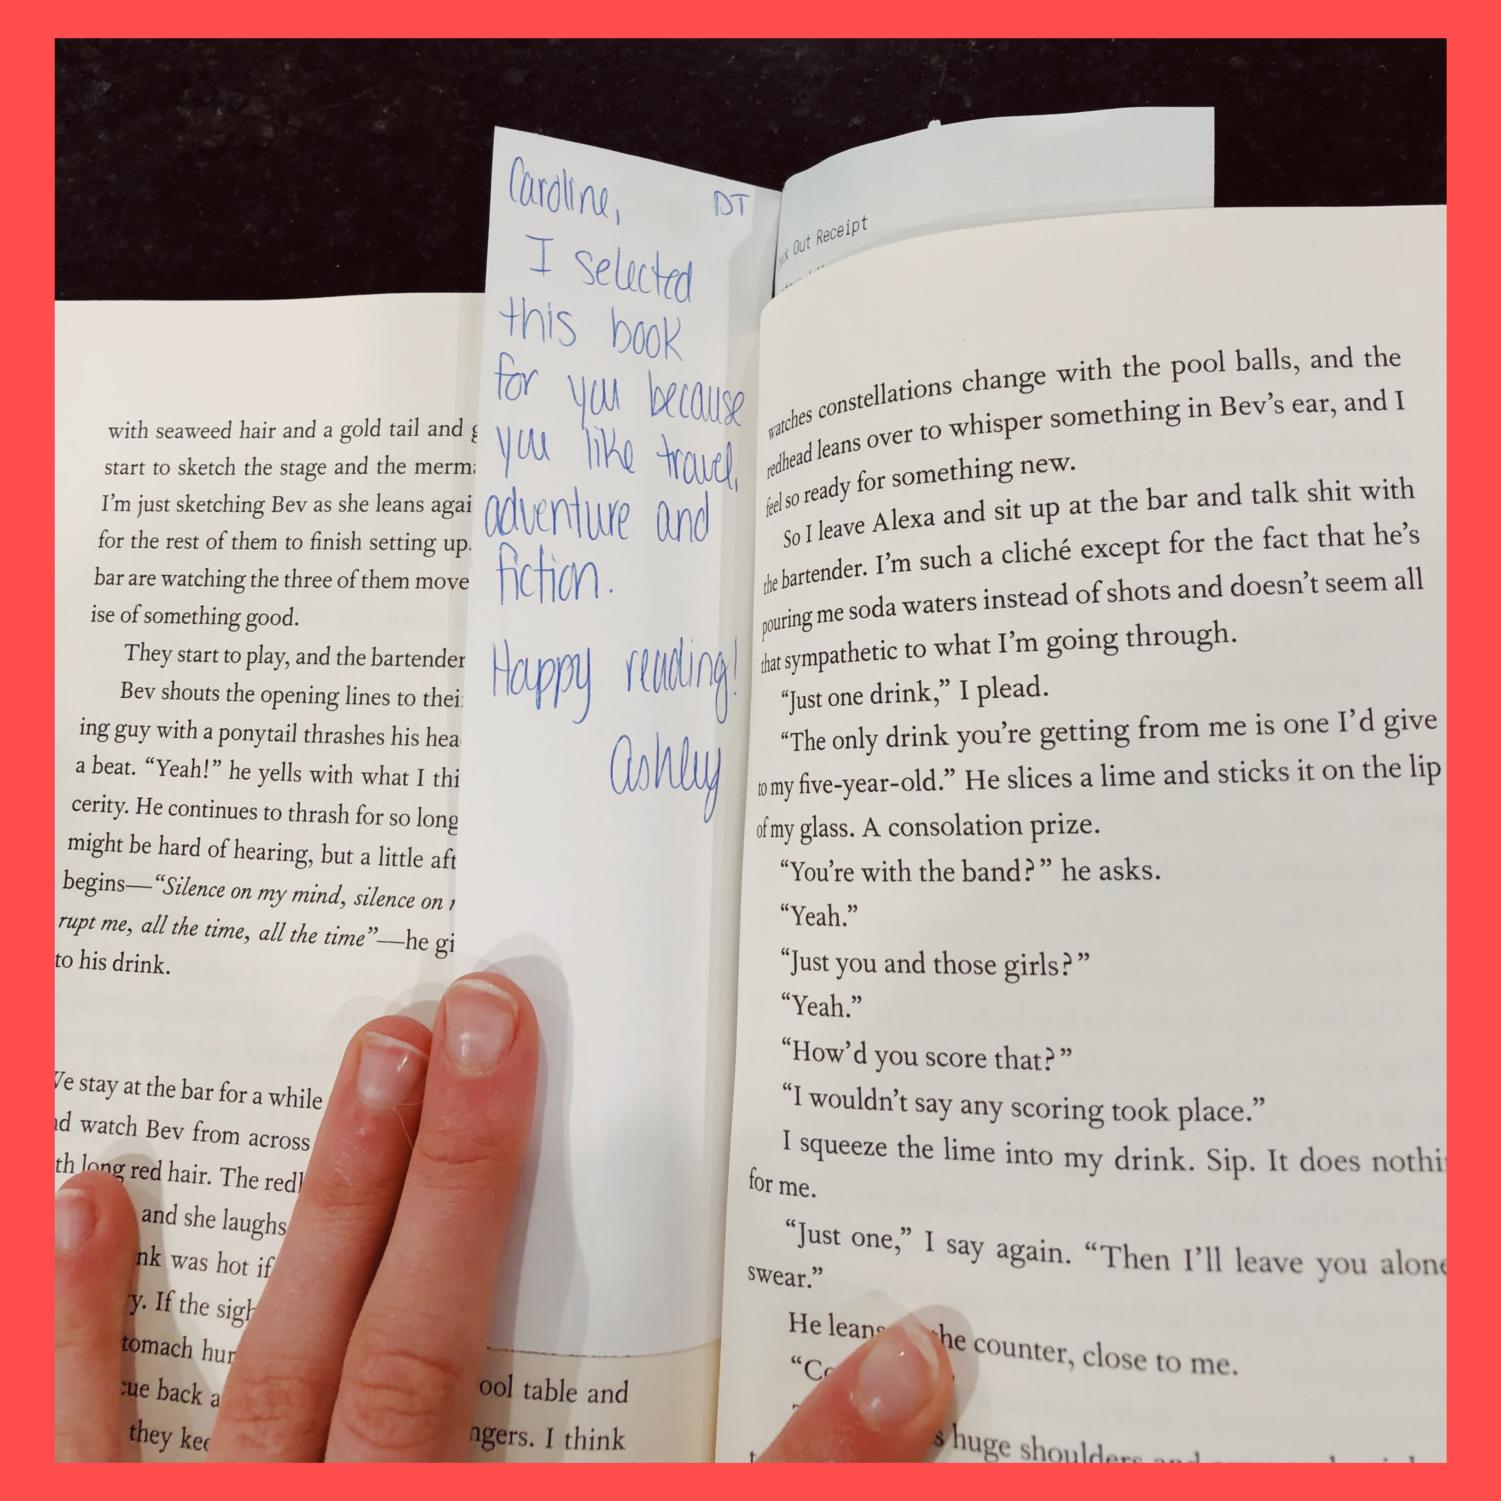 with seaweed hair and a gold tail and
start to sketch the stage and the
I'm just sketching Bev as she leans
for the rest of them to finish setting up.
bar are watching the three of them move
ise of something good.
They start to play, and the bartender
Bev shouts the opening lines to
ing guy with a ponytail thrashes his
a beat. “Yeah!” he yells with what I
cerity. He continues to thrash for so long
might be hard of hearing, but a little
begins—“Silence on my mind, silence on
rupt me, all the time, all the time”—he
to his drink.
stay at the bar for a while
watch Bev from across
long red hair. The
and she laughs
was hot if
If the
back
they
ool table and
ngers. I think
Caroline, DT
I selected
this book
for you because
you like travel,
adventure and
fiction.
Happy reading!
Ashley
Out Receipt
watches constellations change with the pool balls, and the
redhead leans over to whisper something in Bev's ear, and I
feel so ready for something new.
So I leave Alexa and sit up at the bar and talk shit with
the bartender. I'm such a cliché except for the fact that he's
pouring me soda waters instead of shots and doesn't seem all
that sympathetic to what I'm going through.
“Just one drink,” I plead.
“The only drink you're getting from me is one I'd give
to my five-year-old.” He slices a lime and sticks it on the lip
of my glass. A consolation prize.
“You're with the band?” he asks.
“Yeah.”
“Just you and those girls?”
“Yeah.”
“How'd you score that?”
“I wouldn't say any scoring took place.”
I squeeze the lime into my drink. Sip. It does nothi
for me.
“Just one,” I say again. “Then I'll leave you alone
swear.”
He leans the counter, close to me.
huge shoulders